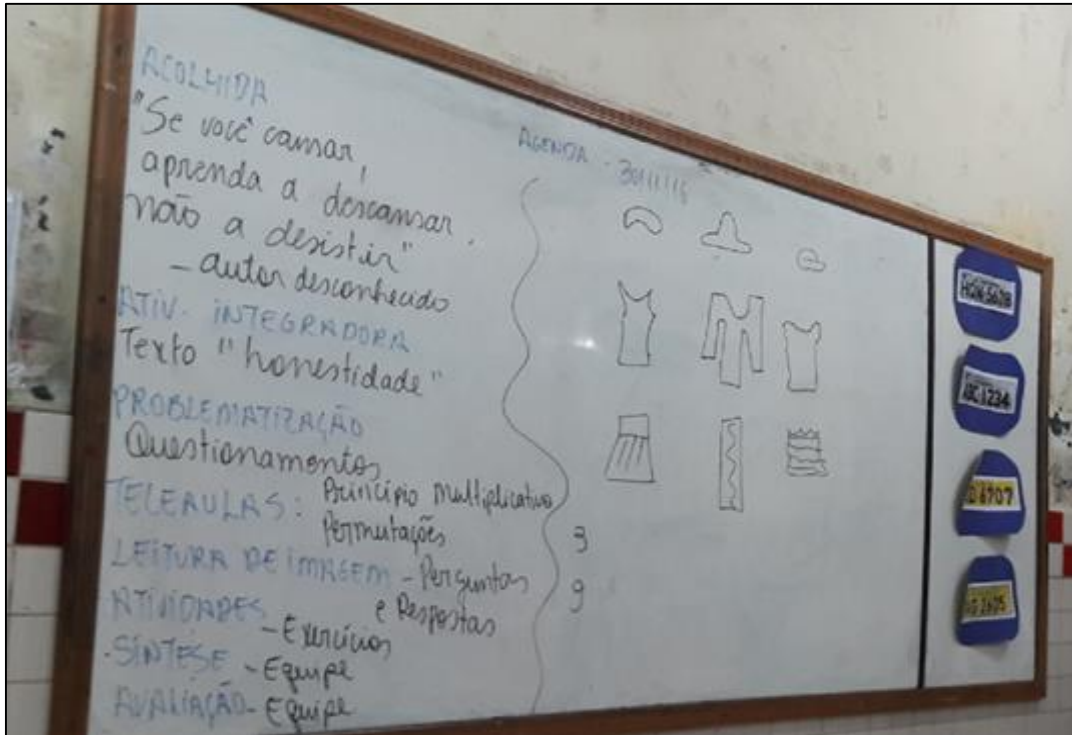 ACOLHIDA
"Se você cansar,
aprenda a descansar,
não a desistir"
- autor desconhecido
ATIV. INTEGRADORA
Texto "honestidade"
PROBLEMATIZAÇÃO
Questionamentos
TELEAULAS: Princípio Multiplicativo
Permutações
LEITURA DE IMAGEM - Perguntas
e Respostas
ATIVIDADES - Exercícios
SÍNTESE - Equipe
AVALIAÇÃO - Equipe
AGENDA - 30/11/16
3
9
ABC-1234
6707